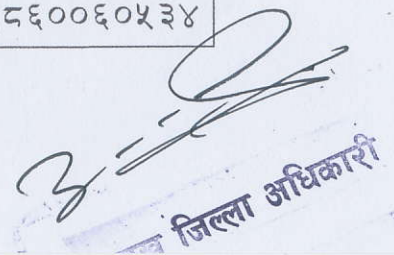 ८६००६०५३४
जिल्ला अधिकारी